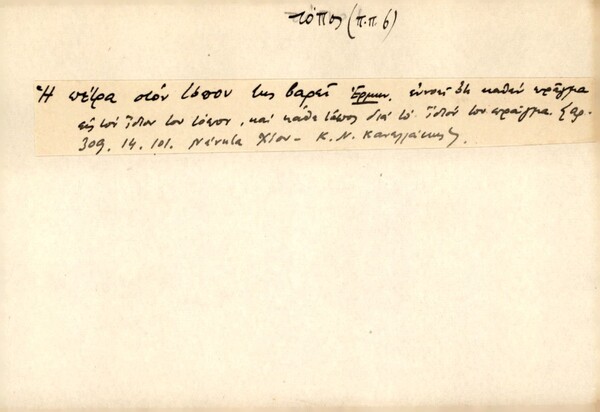 τόπος (π.π 6)
Ἡ πέτρα στὸν τόπον της βαρεῖ Ἑρμην. ἐννοεῖ ὅτι καθὲν πρᾶγμα
εἰς τὸν ἴδιον του τόπον, καὶ κάθε τόπος διὰ τὸ ἴδιόν του πρᾶγμα.
309. 14. 101. Νένητα Χίου - Κ. Ν. Κανελλάκης